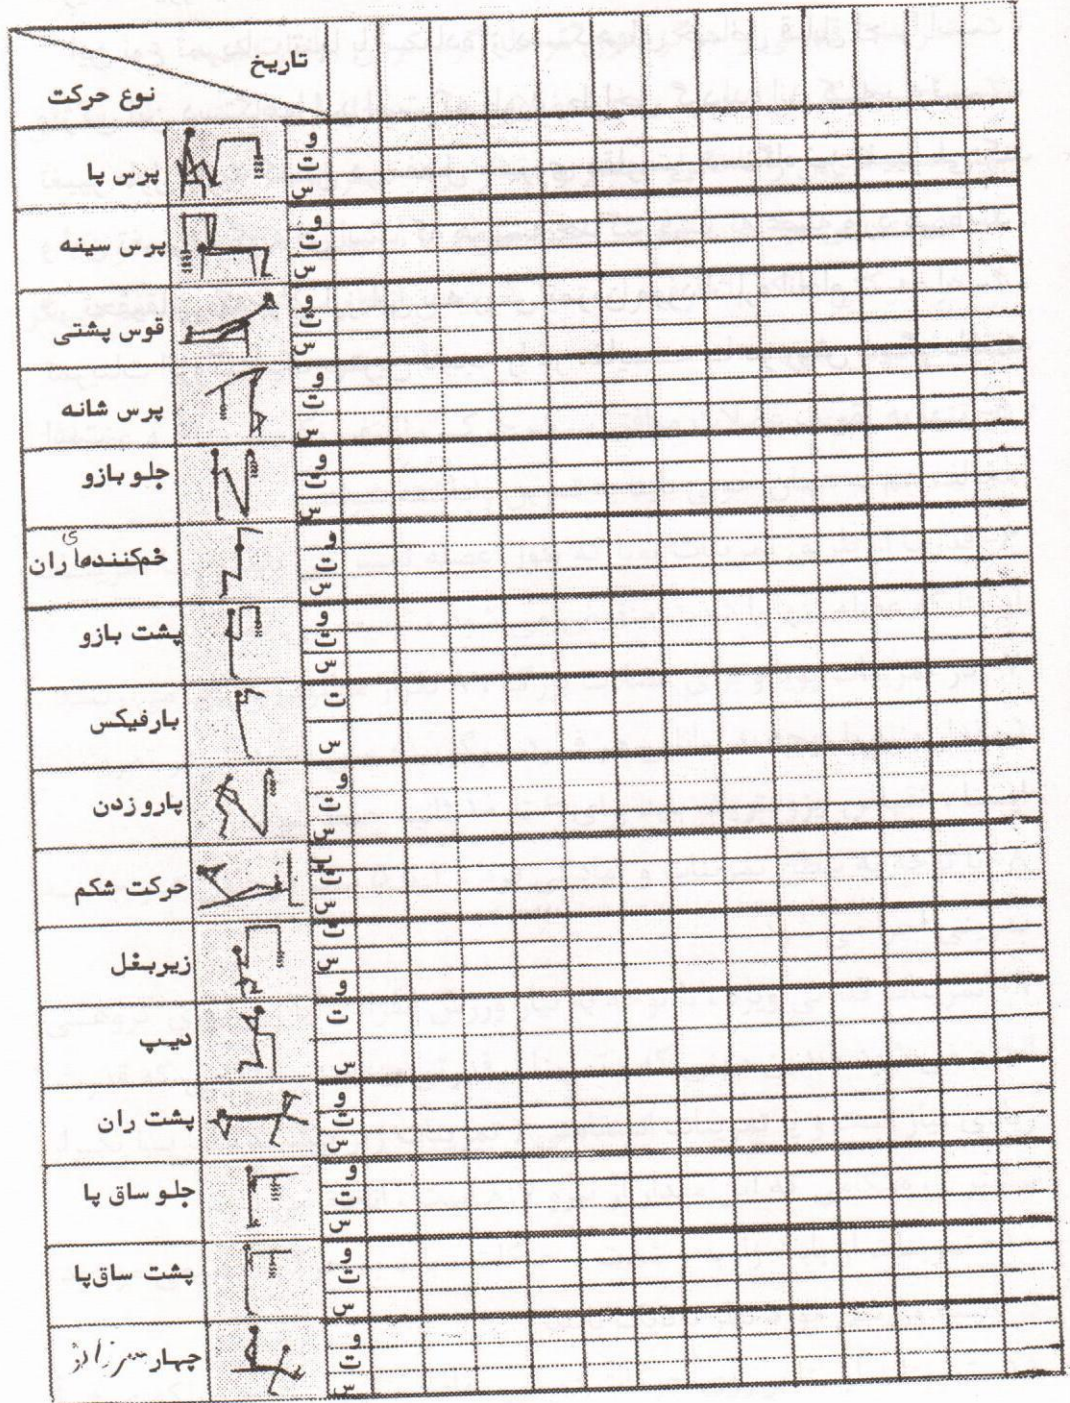 تاریخ
نوع حرکت
پرس پا
و
ت
س
پرس سینه
و
ت
س
قوس پشتی
و
ت
س
پرس شانه
و
ت
س
جلو بازو
و
ت
س
خم‌کننده‌های ران
و
ت
س
پشت بازو
و
ت
س
بارفیکس
ت
س
پارو زدن
و
ت
س
حرکت شکم
ت
س
زیربغل
ت
س
و
دیپ
ت
س
پشت ران
و
ت
س
جلو ساق پا
و
ت
س
پشت ساق‌پا
و
ت
س
چهار سر ران
و
ت
س